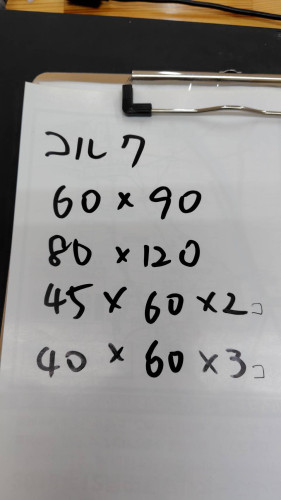 コルク
60×90
80×120
45×60×2コ
40×60×3コ